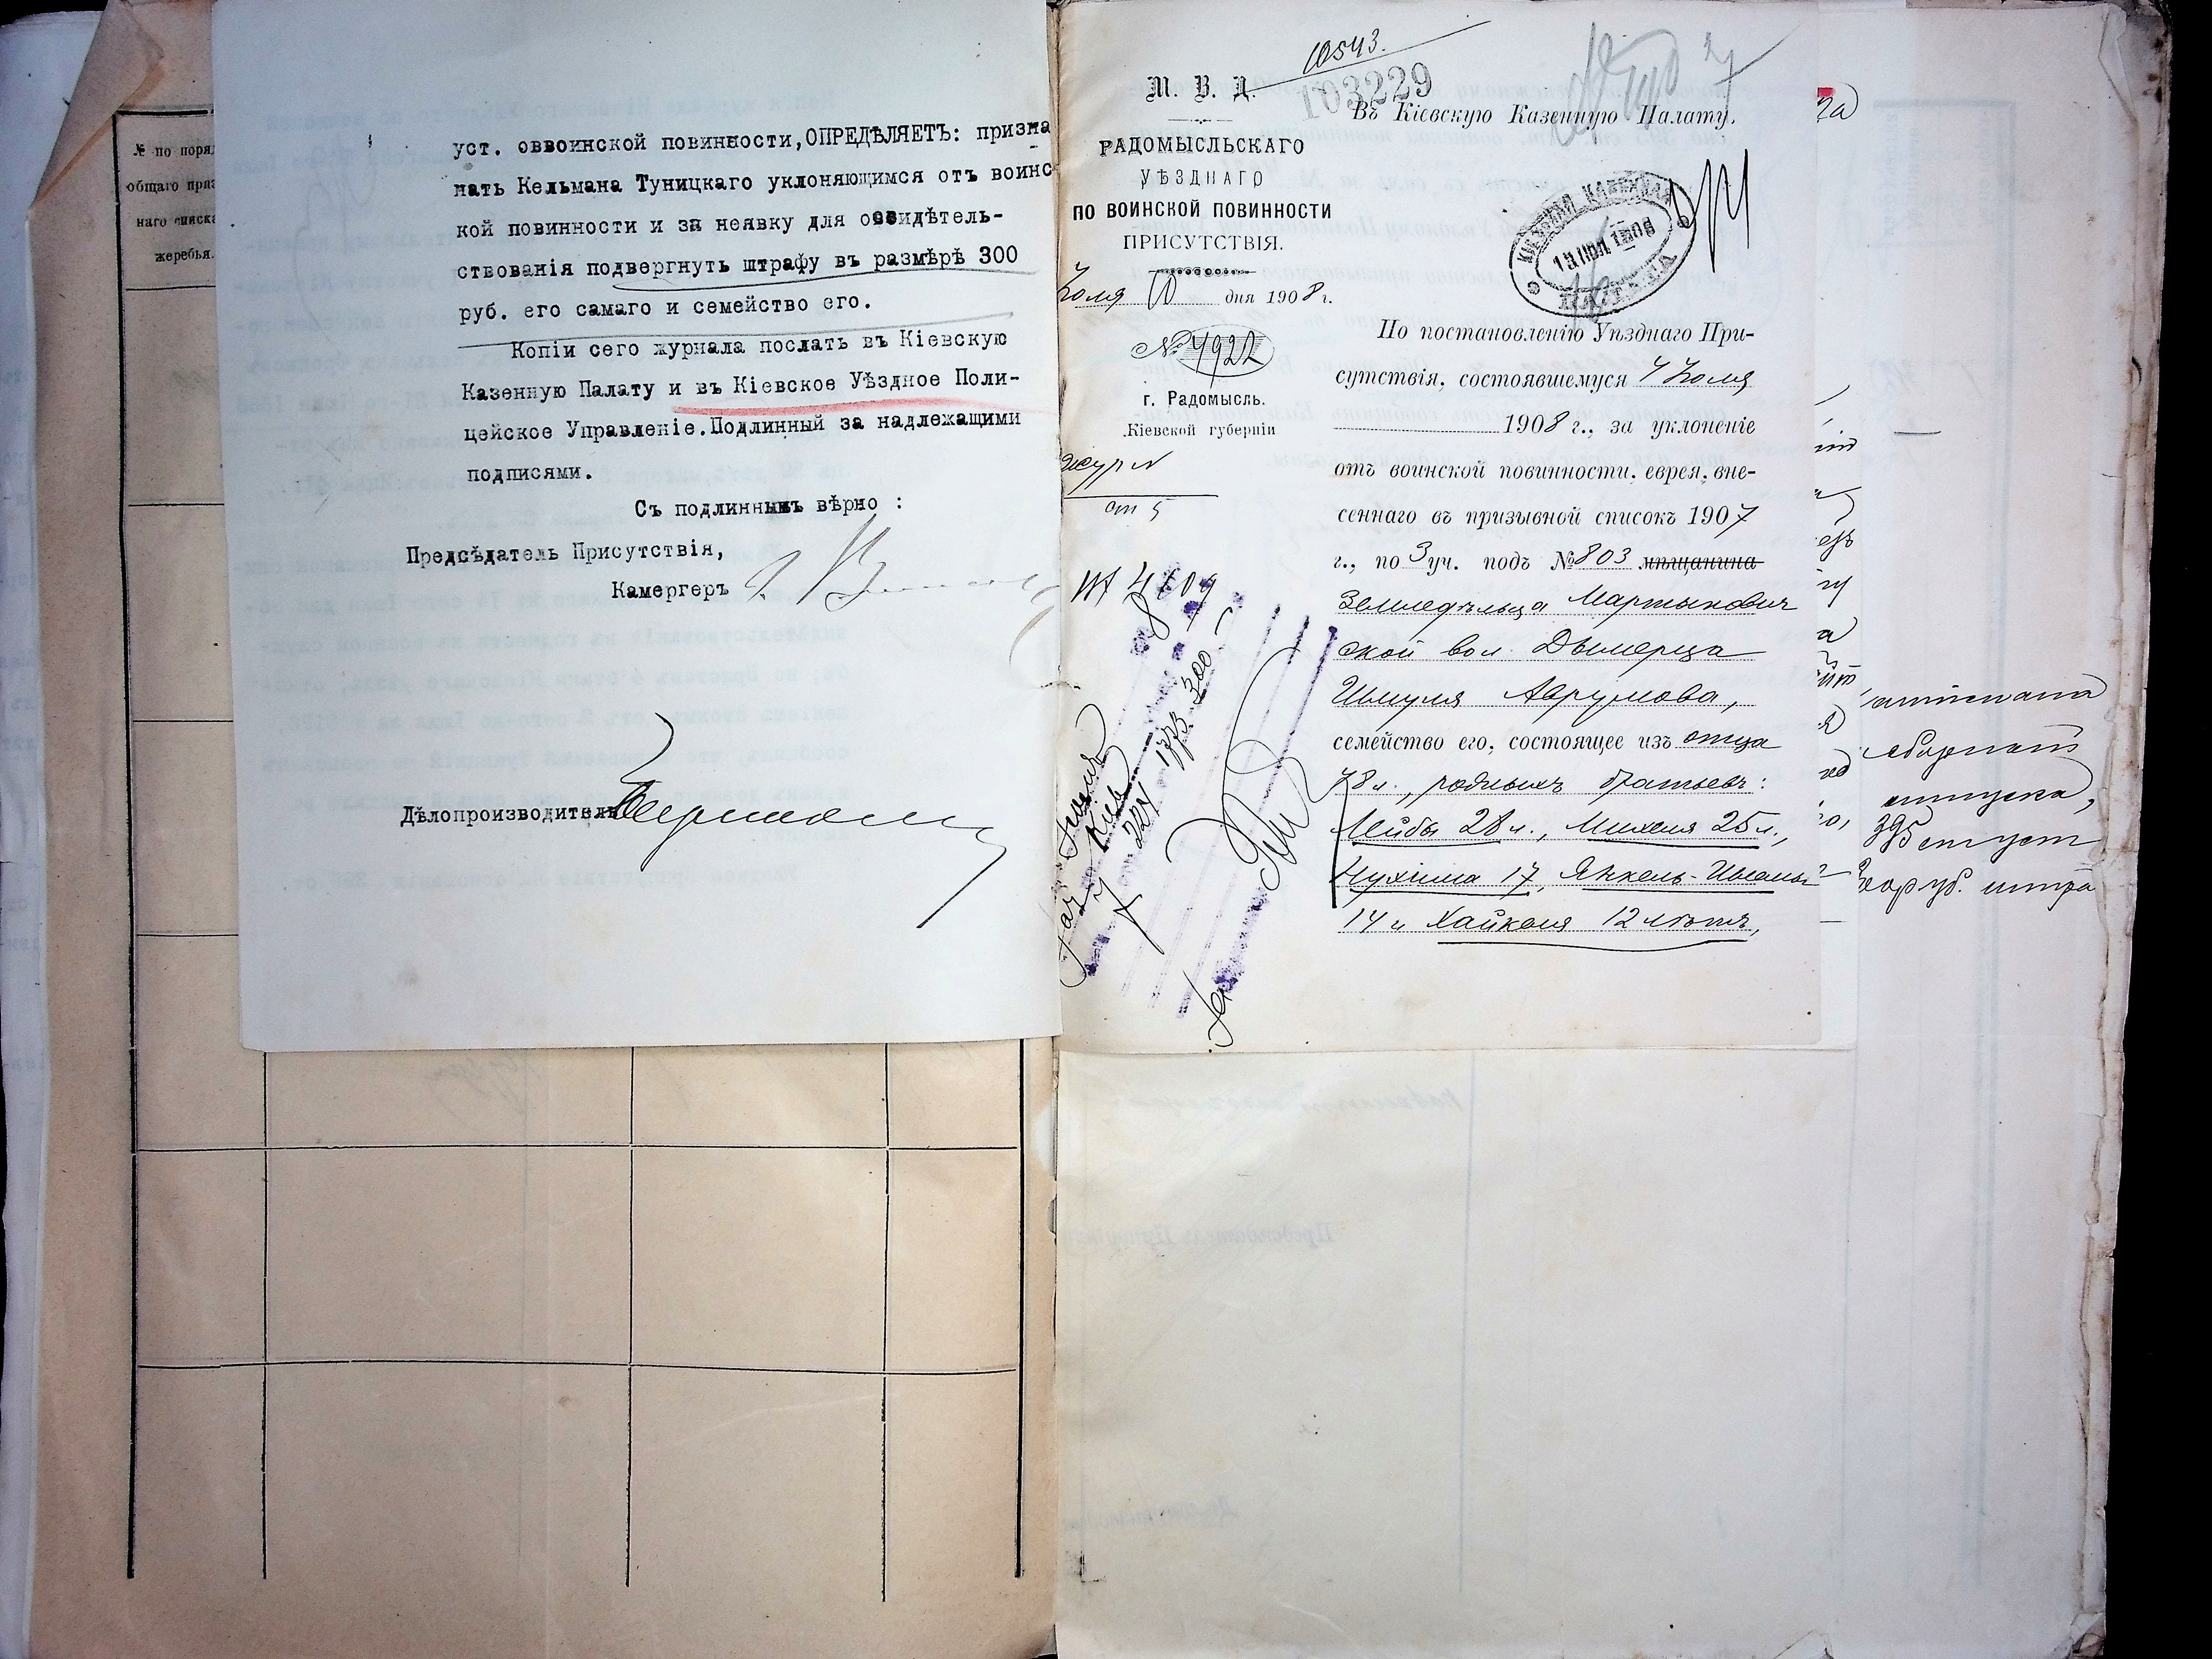 № по поряд
общаго приз
наго списка
жеребья.
уст. оввоинской повинности, ОПРЕДѢЛЯЕТЪ: призна
нать Кельмана Туницкаго уклоняющимся отъ воинс
кой повинности и за неявку для освидѣтель-
ствованія подвергнуть штрафу въ размѣрѣ 300
руб. его самаго и семейство его.
Копіи сего журнала послать въ Кіевскую
Казенную Палату и въ Кіевское Уѣздное Поли-
цейское Управленіе. Подлинный за надлежащими
подписями.
Съ подлиннымъ вѣрно :
Предсѣдатель Присутствія,
Камергеръ
Дѣлопроизводитель
10543.
103229
М. В. Д.
РАДОМЫСЛЬСКАГО
УѢЗДНАГО
ПО ВОИНСКОЙ ПОВИННОСТИ
ПРИСУТСТВІЯ.
Іюля 10 дня 1908 г.
№ 4922
г. Радомысль.
Кіевской губерніи
Въ Кіевскую Казенную Палату.
КІЕВСКАЯ КАЗЕННАЯ
ПАЛАТА
По постановленію Уѣзднаго При-
сутствія, состоявшемуся 4 Іюля
1908 г., за уклоненіе
отъ воинской повинности, еврея, вне-
сеннаго въ призывной списокъ 1907
г., по 3 уч. подъ № 803 мѣщанина
земледѣльца Мартынович
ской вол. Дымерца
Шмуля Аврумова,
семейство его, состоящее изъ отца
78 л., родныхъ братьевъ:
Лейбы 28 л., Михеля 25 л.,
Нухима 17, Янкель-
14 и Хайкеля 12 лѣтъ,
300
отпуска,
395 ст уст